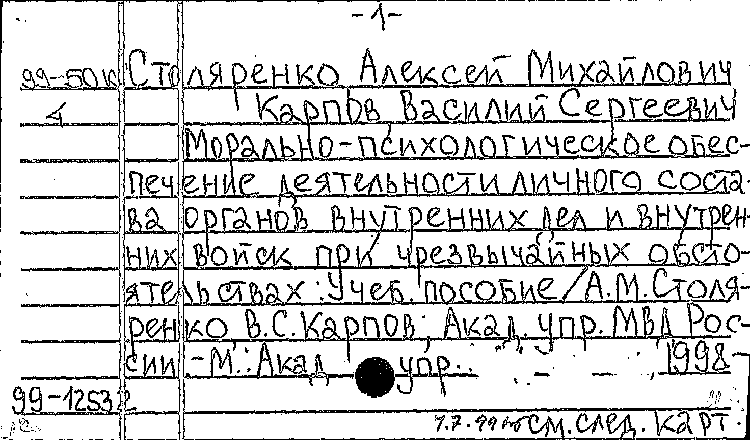 -1-
99-50 Столяренко Алексей Михайлович
4 Карпов Василий Сергеевич
Морально-психологическое обес-
печение деятельности личного соста-
ва органов внутренних дел и внутрен
них войск при чрезвычайных обсто-
ятельствах: Учеб. пособие/А.М.Столя-
ренко В.С.Карпов; Акад. упр. МВД Рос-
сии.-М.: Акад упр. 1998-
99-12532
см. след. карт.